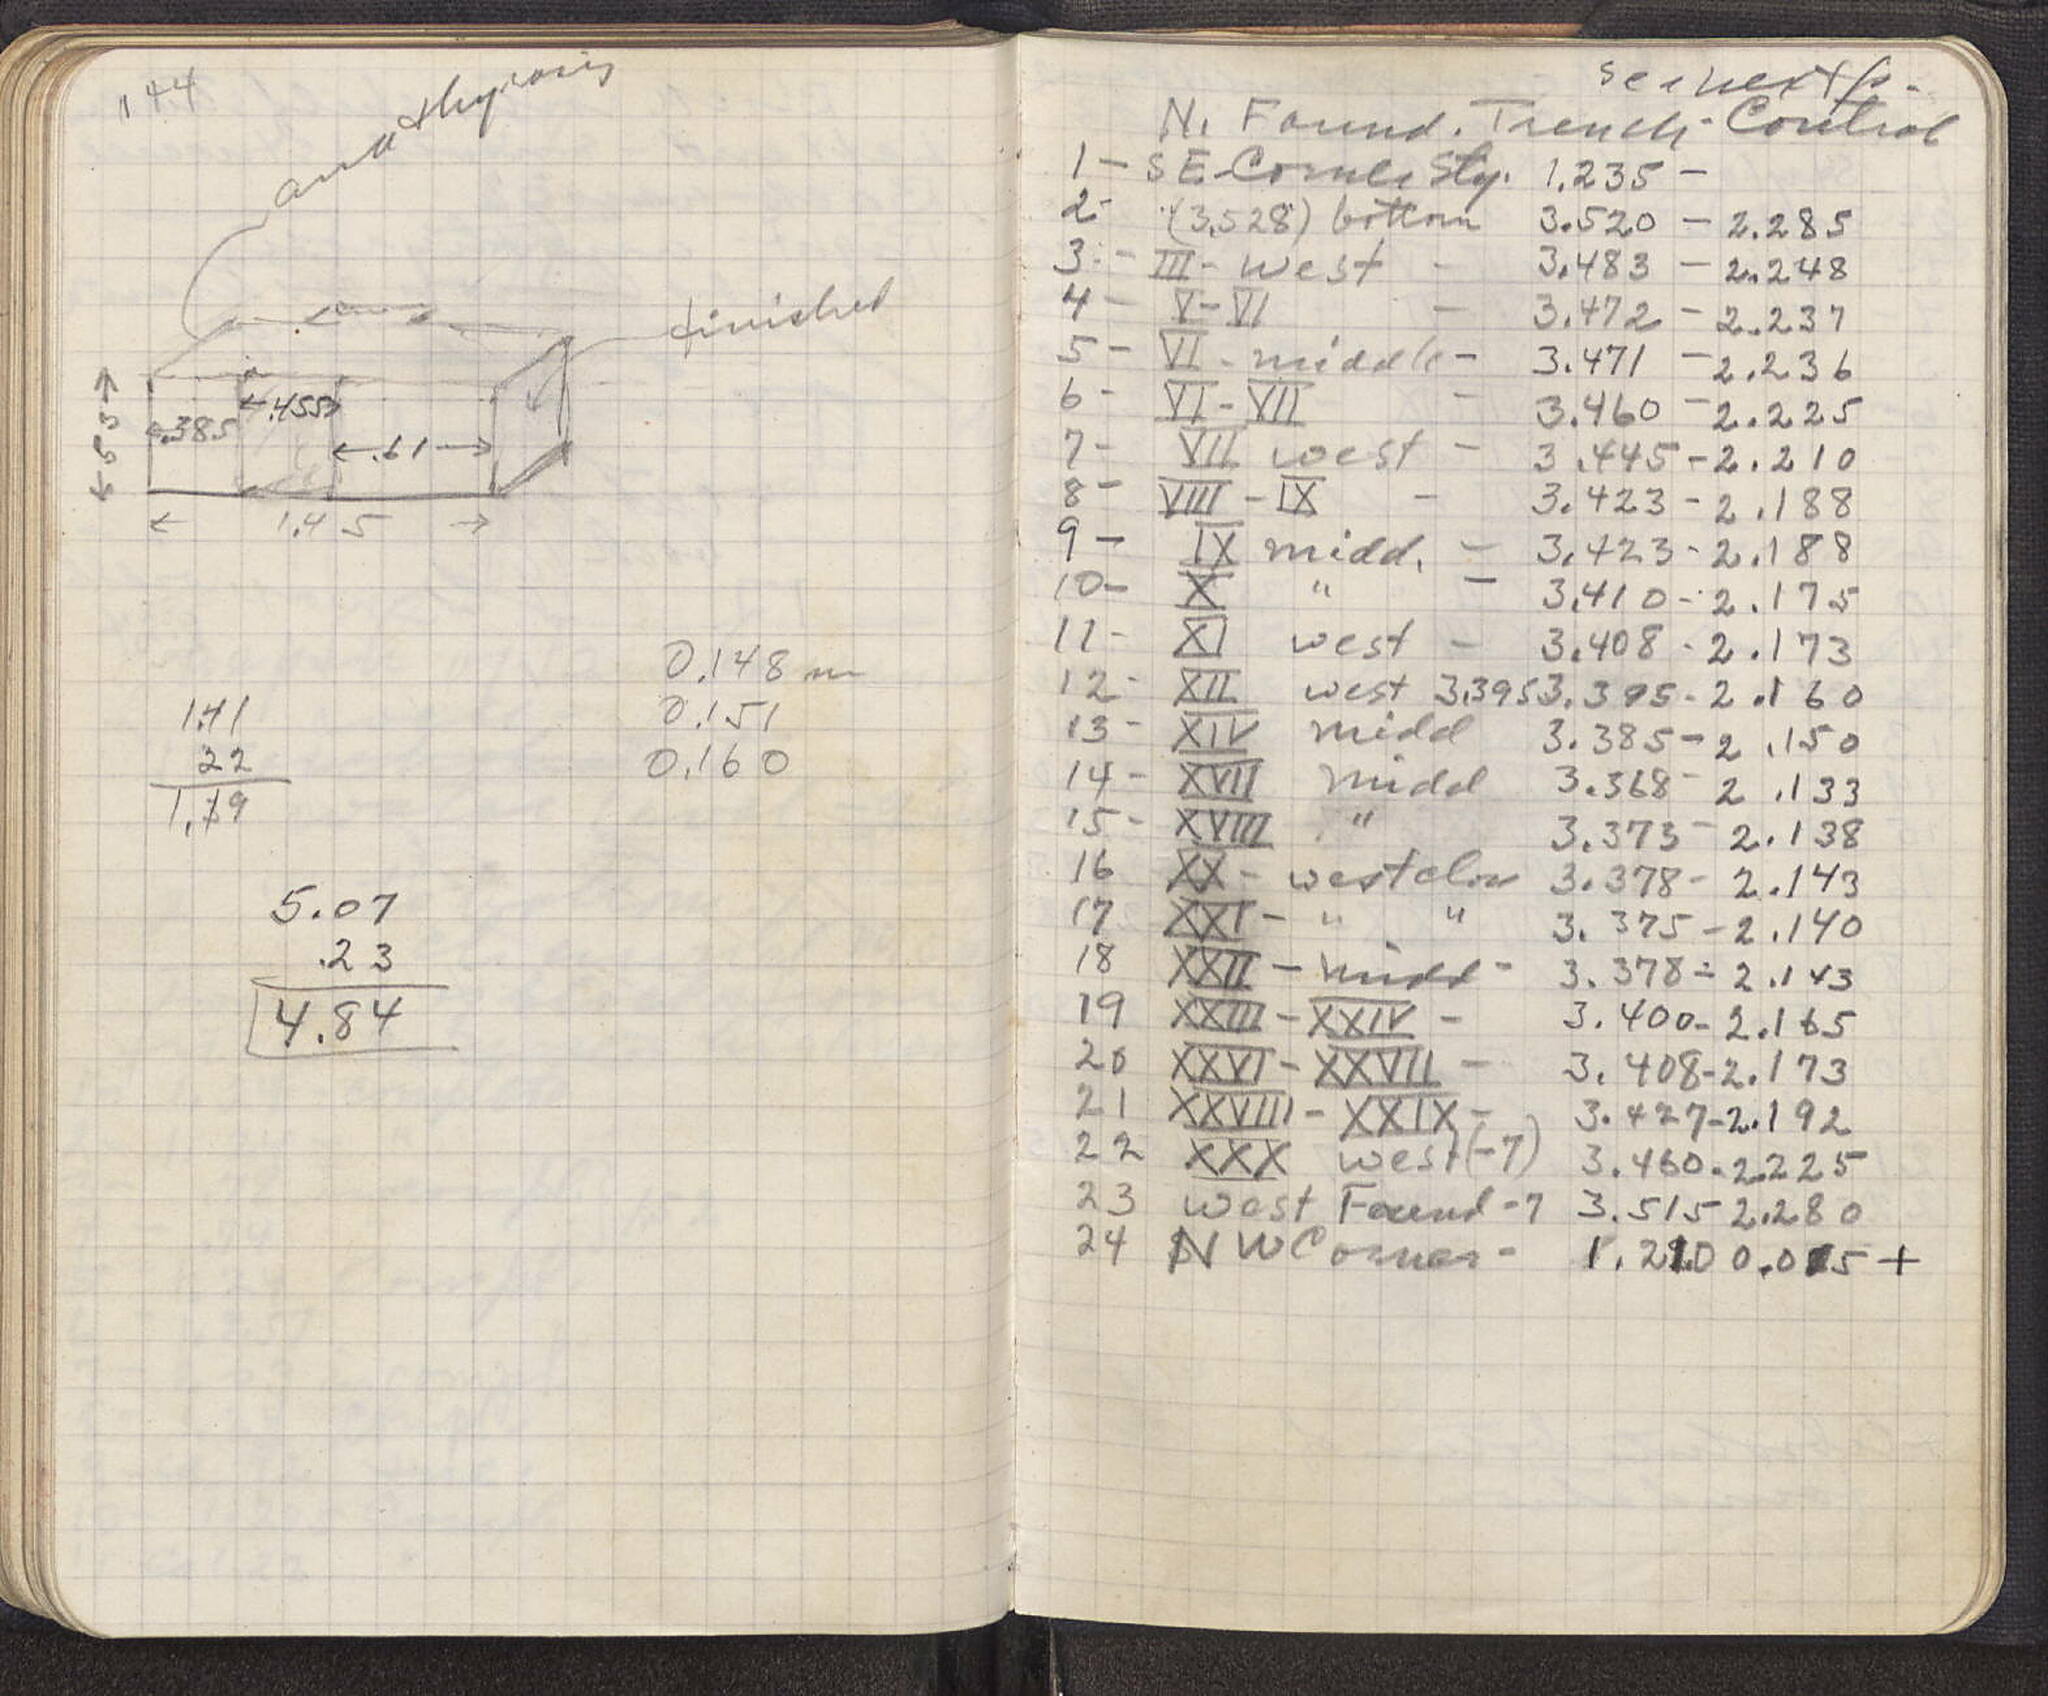 144
anathyrosis
finished
.455
.385
.61
.53
1.45
0.148 m
0.151
0.160
1.41
22
1.19
5.07
.23
4.84
see next p.
N. Found. Trench - Control
1 - SE. Corner Sty. 1.235 -
2- (3.528) bottom 3.520 - 2.285
3. - III - west - 3.483 - 2.248
4 - V - VI - 3.472 - 2.237
5 - VI - middle - 3.471 - 2.236
6 - VI - VII - 3.460 - 2.225
7 - VII west - 3.445 - 2.210
8 - VIII - IX - 3.423 - 2.188
9 - IX midd. - 3.423 - 2.188
10 - X " - 3.410 - 2.175
11 - XI west - 3.408 - 2.173
12 - XII west 3.395 3.395 - 2.160
13 - XIV midd 3.385 - 2.150
14 - XVII midd 3.368 - 2.133
15 - XVIII " 3.373 - 2.138
16 XX - west 3.378 - 2.143
17 XXI - " " 3.375 - 2.140
18 XXII - midd - 3.378 - 2.143
19 XXIII - XXIV - 3.400 - 2.165
20 XXVI - XXVII - 3.408 - 2.173
21 XXVIII - XXIX - 3.427 - 2.192
22 XXX west (-7) 3.460 - 2.225
23 west Found - 7 3.515 2.280
24 NW Corner - 1.210 0.015 +